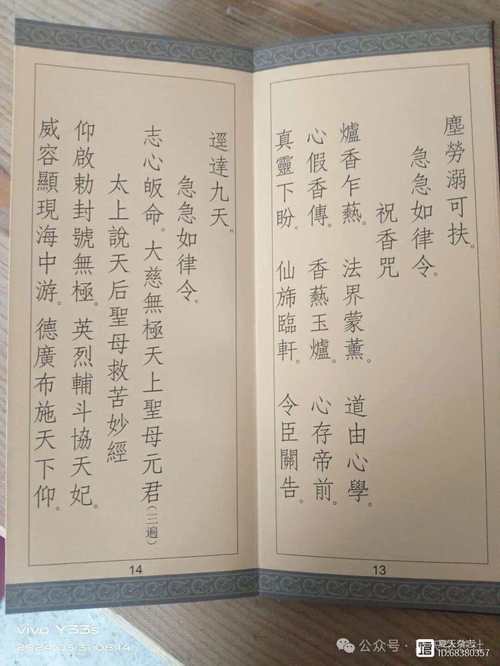 塵勞溺可扶。
急急如律令。
祝香咒
爐香乍爇。法界蒙薰。道由心學。
心假香傳。香爇玉爐。心存帝前。
真靈下盼。仙斾臨軒。令臣關告。
13
逕達九天。
急急如律令。
志心皈命。大慈無極天上聖母元君(三遍)
太上說天后聖母救苦妙經
仰啟勅封號無極。英烈輔斗協天妃。
威容顯現海中游。德廣布施天下仰。
14
vivo Y33s
2024.05.31 08:14
公众号·
夏天杂志社
ID:68380357